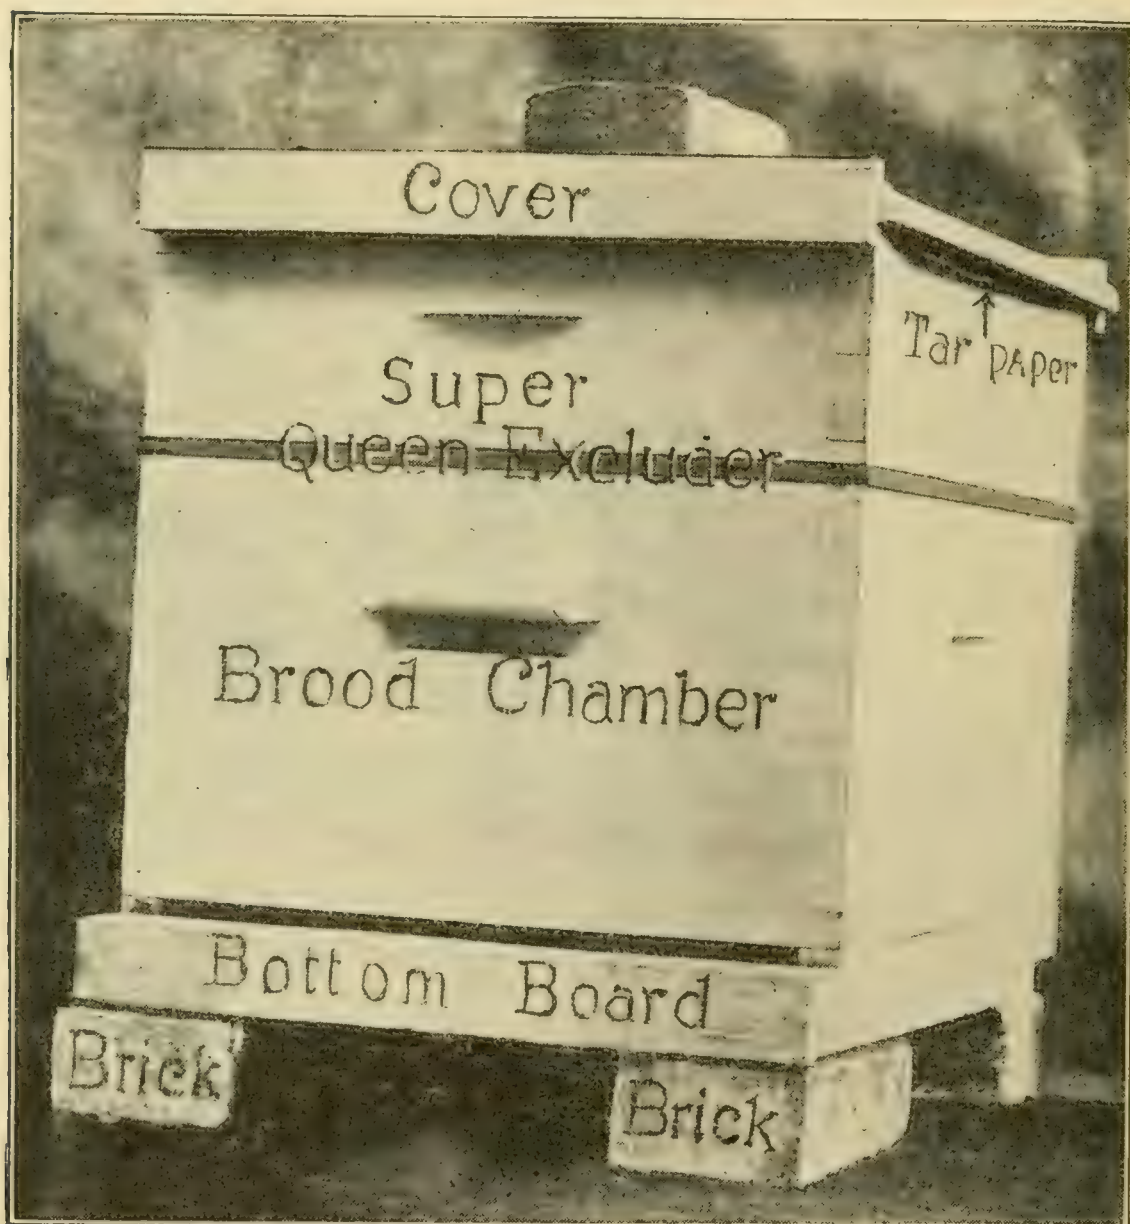 Cover
Tar paper
Super
Queen Excluder
Brood Chamber
Bottom Board
Brick
Brick